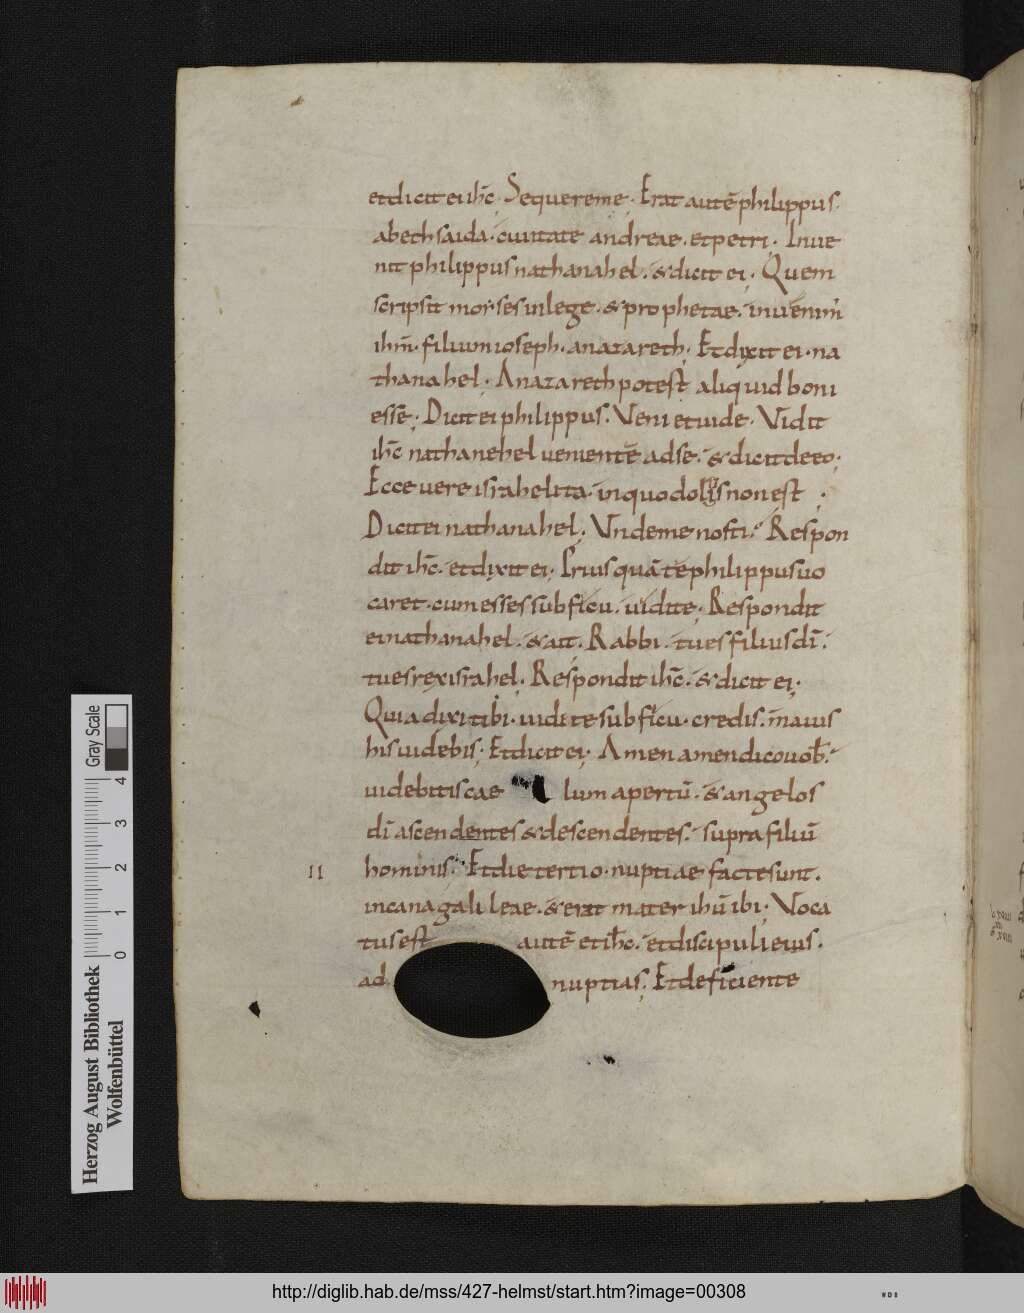 et dicit ei ihc̄. Sequere me. Erat autē philippus.
a bethsaida. ciuitate andreae. et petri. Inue
nit philippus nathanahel. & dicit ei. Quem
scripsit moyses in lege. & prophetae. inuenim'
ihm̄. filium ioseph. a nazareth. Et dixit ei. na
thanahel. A nazareth potest aliquid boni
esse. Dicit ei philippus. Veni et uide. Vidit
ihc̄ nathanehel uenientē ad se. & dicit de eo.
Ecce uere israhelita. in quo dolus non est.
Dicit ei nathanahel. Vnde me nosti. Respon
dit ihc̄. et dixit ei. Priusquā te philippus uo
caret. cum esses sub ficu. uidi te. Respondit
ei nathanahel. & ait. Rabbi. tu es filius dī.
tu es rex israhel. Respondit ihc̄. & dicit ei.
Quia dixi tibi. uidi te sub ficu. credis. maius
his uidebis. Et dicit ei. Amen amen dico uob̄.
uidebitis cae lum apertū. & angelos
dī ascendentes & descendentes. supra filiū
II hominis. Et die tertio. nuptiae factae sunt.
in cana galileae. & erat mater ihū ibi. Voca
tus est autē et ihc̄. et discipuli eius.
ad nuptias. Et deficiente
Gray Scale
0 1 2 3 4
Herzog August Bibliothek
Wolfenbüttel
http://diglib.hab.de/mss/427-helmst/start.htm?image=00308